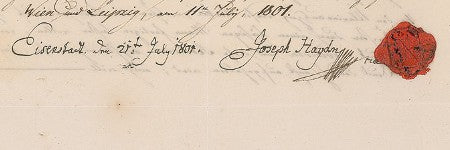 Wien und Leipzig, am 11ten July, 1801.
Eisenstadt den July 1801. Joseph Haydn